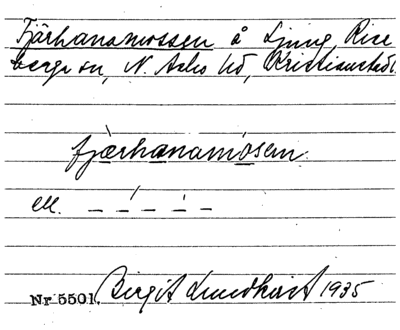 Fjärhanamossen å Ljung, Rise
berga sn, N. Åsbo hd, Kristianstads
fjæ̀rhanamósen
ell. – –́ – –̀ –
Nr 5501. Birgit Lundkvist 1935